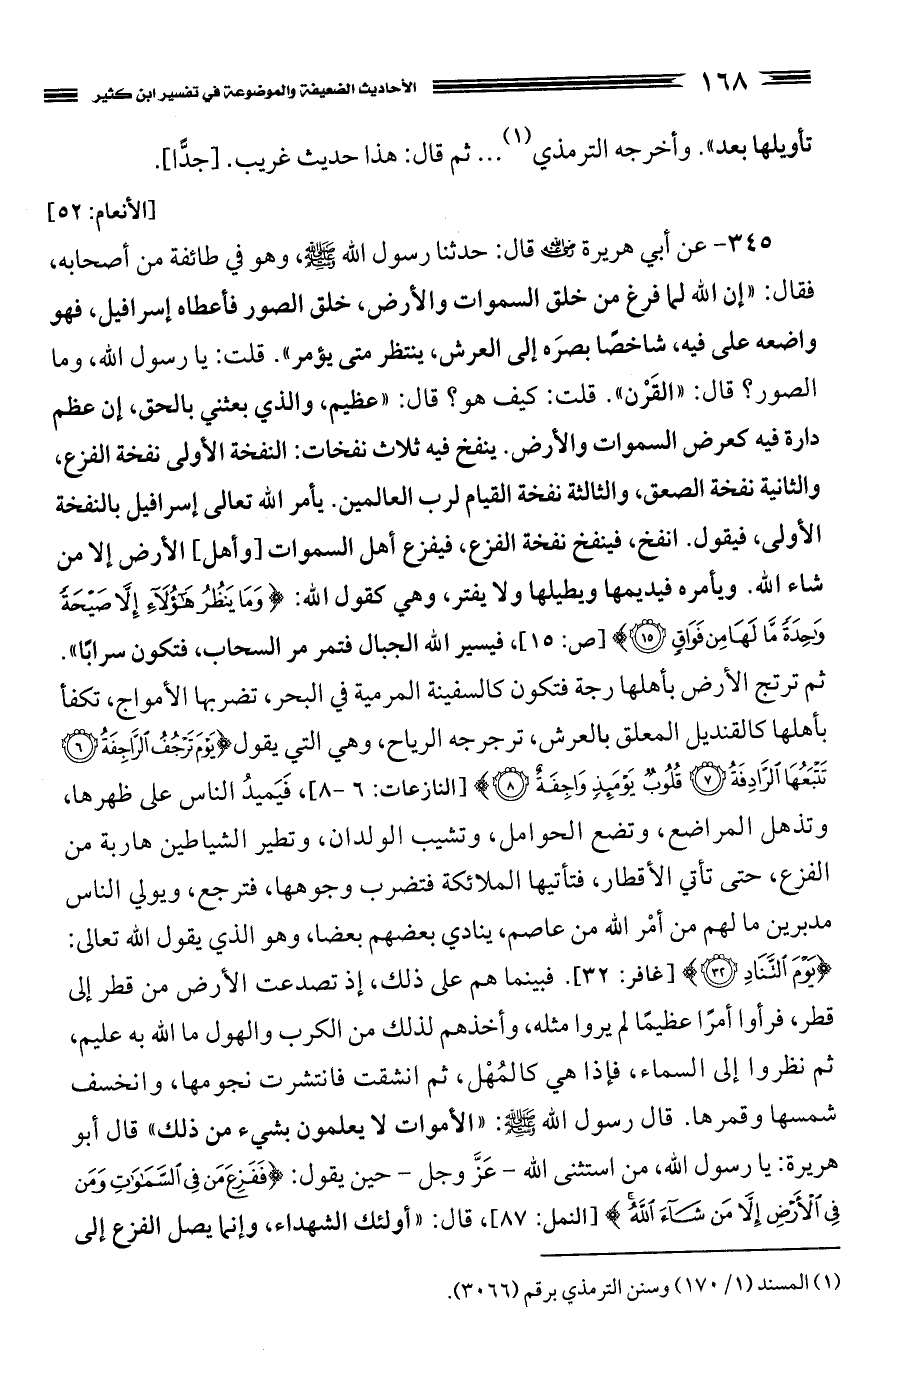 ١٦٨ الأحاديث الضعيفة والموضوعة في تفسير ابن كثير
تأويلها بعد». وأخرجه الترمذي(١)... ثم قال: هذا حديث غريب. [جدًّا].
[الأنعام: ٥٢]
٣٤٥- عن أبي هريرة رضي الله عنه قال: حدثنا رسول الله ﷺ، وهو في طائفة من أصحابه،
فقال: «إن الله لما فرغ من خلق السموات والأرض، خلق الصور فأعطاه إسرافيل، فهو
واضعه على فيه، شاخصًا بصرَه إلى العرش، ينتظر متى يؤمر». قلت: يا رسول الله، وما
الصور؟ قال: «القَرْن». قلت: كيف هو؟ قال: «عظيم، والذي بعثني بالحق، إن عظم
دارة فيه كعرض السموات والأرض. ينفخ فيه ثلاث نفخات: النفخة الأولى نفخة الفزع،
والثانية نفخة الصعق، والثالثة نفخة القيام لرب العالمين. يأمر الله تعالى إسرافيل بالنفخة
الأولى، فيقول. انفخ، فينفخ نفخة الفزع، فيفزع أهل السموات [وأهل] الأرض إلا من
شاء الله. ويأمره فيديمها ويطيلها ولا يفتر، وهي كقول الله: ﴿وَمَا يَنظُرُ هَٰٓؤُلَآءِ إِلَّا صَيْحَةً
وَٰحِدَةً مَّا لَهَا مِن فَوَاقٍ ١٥﴾ [ص: ١٥]، فيسير الله الجبال فتمر مر السحاب، فتكون سرابًا».
ثم ترتج الأرض بأهلها رجة فتكون كالسفينة المرمية في البحر، تضربها الأمواج، تكفأ
بأهلها كالقنديل المعلق بالعرش، ترجرجه الرياح، وهي التي يقول ﴿يَوْمَ تَرْجُفُ ٱلرَّاجِفَةُ ٦
تَتْبَعُهَا ٱلرَّادِفَةُ ٧ قُلُوبٌ يَوْمَئِذٍ وَاجِفَةٌ ٨﴾ [النازعات: ٦-٨]، فَيَميدُ الناس على ظهرها،
وتذهل المراضع، وتضع الحوامل، وتشيب الولدان، وتطير الشياطين هاربة من
الفزع، حتى تأتي الأقطار، فتأتيها الملائكة فتضرب وجوهها، فترجع، ويولي الناس
مدبرين ما لهم من أمْر الله من عاصم، ينادي بعضهم بعضا، وهو الذي يقول الله تعالى:
﴿يَوْمَ ٱلتَّنَادِ ٣٢﴾ [غافر: ٣٢]. فبينما هم على ذلك، إذ تصدعت الأرض من قطر إلى
قطر، فرأوا أمرًا عظيمًا لم يروا مثله، وأخذهم لذلك من الكرب والهول ما الله به عليم،
ثم نظروا إلى السماء، فإذا هي كالمُهْل، ثم انشقت فانتشرت نجومها، وانخسف
شمسها وقمرها. قال رسول الله ﷺ: «الأموات لا يعلمون بشيء من ذلك» قال أبو
هريرة: يا رسول الله، من استثنى الله - عَزَّ وجل - حين يقول: ﴿فَفَزِعَ مَن فِي ٱلسَّمَٰوَٰتِ وَمَن
فِي ٱلْأَرْضِ إِلَّا مَن شَآءَ ٱللَّهُ﴾ [النمل: ٨٧]، قال: «أولئك الشهداء، وإنما يصل الفزع إلى
(١) المسند (١/ ١٧٠) وسنن الترمذي برقم (٣٠٦٦).